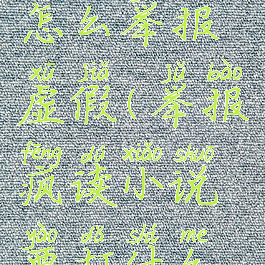 怎么举报
xū jiǎ jǔ bào
虚假(举报
fēng dú xiǎo shuō
疯读小说
yào dǎ shí me
要打什么